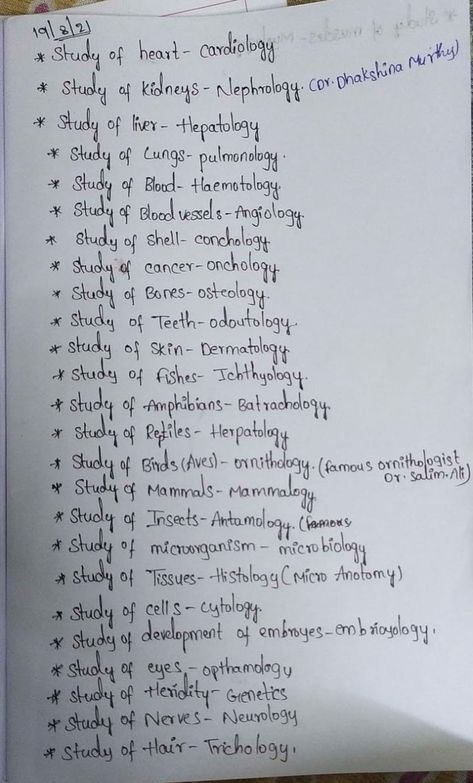 19/8/21
* Study of heart - cardiology
* Study of kidneys - Nephrology. (Dr. Dhakshina Murthy)
* Study of liver - Hepatology
* Study of Lungs - pulmonology.
* Study of Blood - Haemotology.
* Study of Blood vessels - Angiology.
* Study of Shell - conchology
* Study of cancer - onchology
* Study of Bones - osteology.
* Study of Teeth - odoutology.
* Study of Skin - Dermatology
* Study of fishes - Ichthyology.
* Study of Amphibians - Batrachology.
* Study of Reptiles - Herpatology
* Study of Birds (Aves) - ornithology. (famous ornithologist
Dr. Salim. Ali)
* Study of Mammals - Mammalogy
* Study of Insects - Antamology. (famous
* Study of microorganism - microbiology
* Study of Tissues - Histology (Micro Anotomy)
* Study of cells - cytology.
* Study of development of embroyes - embrioyology.
* Study of eyes - opthamology
* Study of Heridity - Genetics
* Study of Nerves - Neurology
* Study of Hair - Trichology.